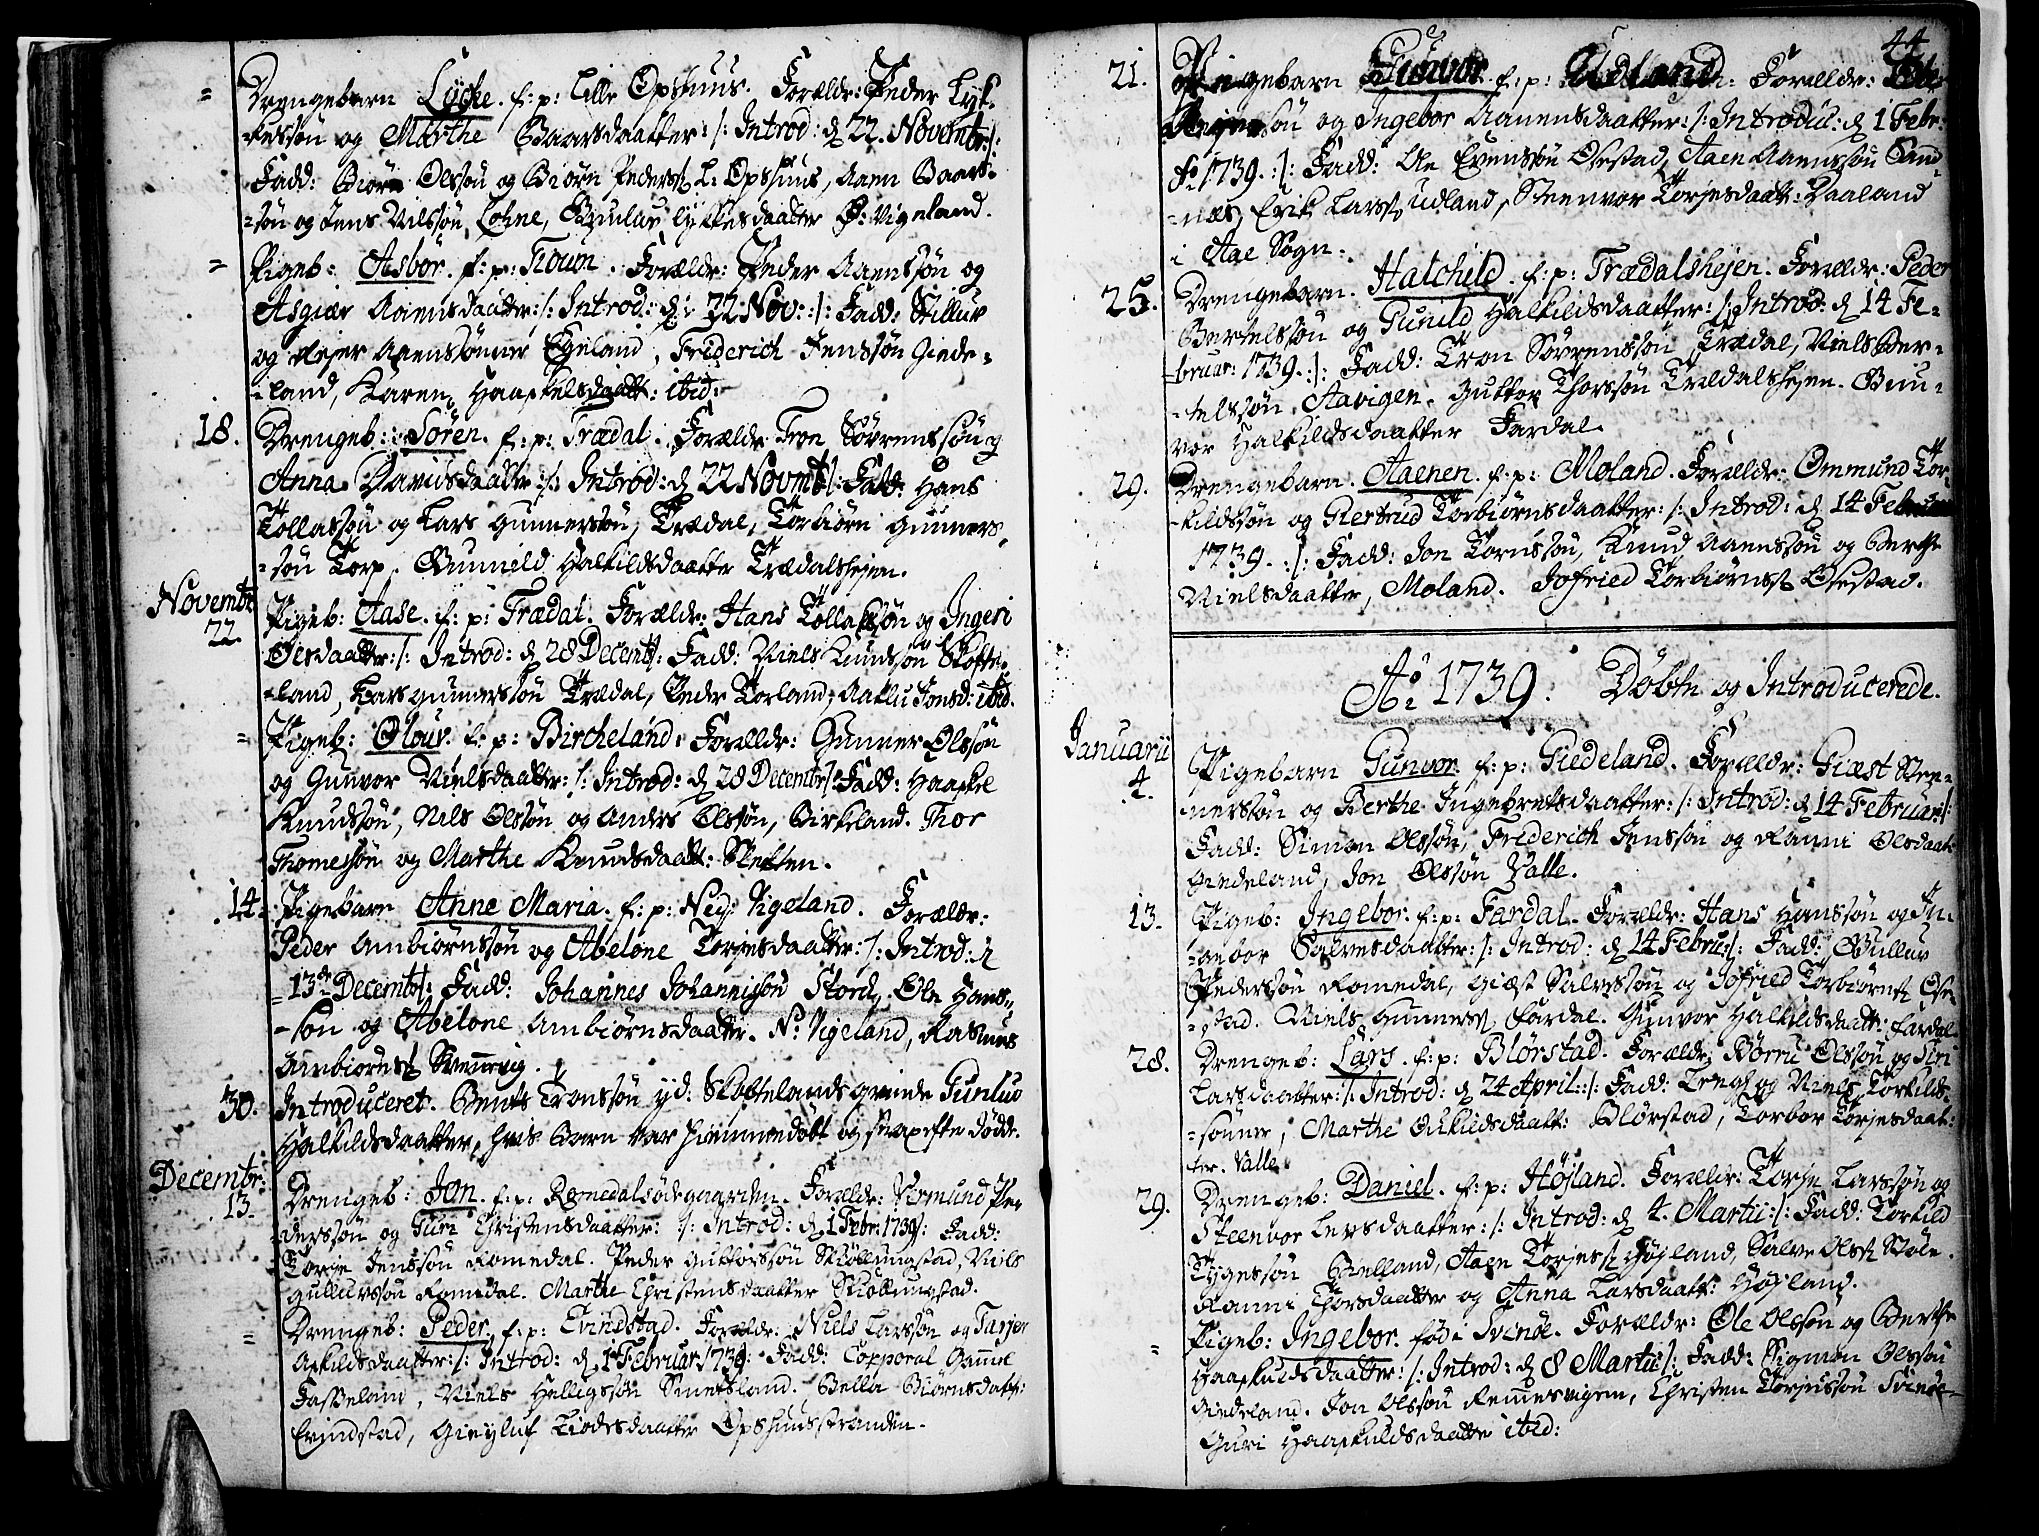 = Drengebarn Lycke. f: p: Lille Opshuus. Forældr: Peder Lyk-
-kessøn og Marthe Baarsdaatter :/: Introd: d 22. Novembr:/:
Fadd: Biørn Olssøn og Biørn Peders. L: Opshuus, Aaen Baars-
-søn og Jens Nilssøn, Lohne, Gunlav Lykkesdaatter Ø: Vigeland.
= Pigeb: Asbor. f: p: Tioum. Forældr: Peder Aaenssøn og
Asgiær Aaensdaatter :/: Introd: d: 22 Nov: :/: Fadd: Stilluv
og Rejer Aaenssønner Egeland, Friderich Jenssøn Giede-
-land, Karen Haaskelsdaatt: ibid:
18. Drengeb: Søren. f: p: Trædal. Forældr Tron Sørenssøn og
Anna Davidsdaatter :/: Introd: d 22 Novmb:/: Fadd: Hans
Tollassøn og Lars Gunnerssøn, Trædal, Torbiørn Gunners-
-søn Torp. Gunneld Halkildsdaatter Trædalshejen.
Novembr
22. Pigeb: Aase. f: p: Trædal. Forældr: Hans Tollassøn og Ingeri
Olesdaatter :/: Introd: d 28 Decemb:/: Fadd: Niels Knudssøn Skofte-
-land, Lars Gunnerssøn Trædal, Peder Torland, Aaslu Jonsd: ibid.
= Pigeb: Olouv. f: p: Bircheland. Forældr: Gunner Olssøn
og Gunvor Nielsdaatter :/: Introd: d 28 Decembr:/: Fadd: Haaskel
Knudssøn, Nils Olssøn og Anders Olssøn, Birkeland. Thor
Thomessøn og Marthe Knudsdaatt: Sletten.
14. Pigebarn Anne Maria. f: p: Ned: Vigeland. Forældr:
Peder Ambiørnssøn og Abelone Torjesdaatter :/: Introd: d
13de Decemb:/: Fadd: Johannes Johannissøn Stord, Ole Hans-
-søn og Abelone Ambiørnsdaatter. N: Vigeland, Rasmus
Ambiørns Svennevig.
30. Introduceret. Bents Tronssøn yd: Skoftelands grinde Gunlud
Halkildsdaatter, hvis Barn var hiemmedøbt og strax efter døde.
Decembr:
13. Drengeb: Jon. f: p: Romedalsødegaarden. Forældr: Aomund Pe-
derssøn og Guri Christensdaatter: :/: Introd: d 1 Febr: 1739:/: Fadd:
Torje Jenssøn Romedal. Peder Guttorssøn Skiøllingstad, Niels
Gulluvssøn Romedal. Marthe Christensdaatter Skiøllingstad.
= Drengeb: Peder. f: p: Evindstad. Forældr: Niels Larssøn og Tarjer
Askildsdaatter :/: Introd: d 1 Februar 1739: Fadd: Copporal Gamel
Fasseland, Niels Helligssøn Smedsland. Bella Biørnsdatt:
Evindstad, Gieyluf Tiødesdaatter Opshuusstranden.
44
21. Pigebarn Gunvor. f: p: Udland. Forældr: Peder
Rejerssøn og Ingebor Aanensdaatter :/: Introduc: d 1 Febr:
Ao 1739. :/: Fadd: Ole Evenssøn Øfstad, Aaen Aaenssøn Sand-
-næs, Erik Lars Udland, Steenvor Torjesdaatt: Daaland
i Aae Sogn.
25. Drengebarn. Halchild. f: p: Trædalshejen. Forældr: Peder
Bertelssøn og Gunild Halkildsdaatter :/: Introd: d 14 Fe-
-bruar: 1739. :/: Fadd: Tron Sørenssøn Trædal, Niels Ber-
-telssøn Aavigen. Guttor Thorssøn Trædalshejen. Gun-
vor Halkildsdaatter Fardal.
29. Drengebarn. Aaenen. f: p: Moland. Forældr: Ommund Tor-
-kildssøn og Giertrud Torbiørnsdaatter :/: Introd: d 14 Februar
1739. :/: Fadd: Jon Tornssøn, Knud Aaenssøn og Berthe
Nielsdaatter, Moland. Jofried Torbiørns Øfstad.
Ao 1739. Døbte og Introducerede.
Januarii
4. Pigebarn Gunvor. f: p: Giedeland. Forældr: Giæst Sten-
nerssøn og Berthe Ingebretsdaatter :/: Introd: d 14 Februar:/:
Fadd: Simon Olssøn, Friderich Jenssøn og Ranni Olsdaatt
Giedeland, Jon Olssøn Valle.
13. Pigeb: Ingebor. f: p: Fardal. Forældr: Hans Hanssøn og In-
-gebor Salvesdaatter :/: Introd: d 14 Febru:/: Fadd: Gulluv
Pederssøn Romedal, Giæst Salvessøn og Jofried Torbiørns Øf-
-stad. Niels Gunners Fardal. Gunvor Halkildsdaatt: Fardal
28. Drengeb: Lars. f: p: Blørstad. Forældr: Børru Olssøn og Siri
Larsdaatter :/: Introd: d 24 April :/: Fadd: Tregl og Niels Torkilds-
-sønner, Marthe Aukildsdaatt: Blørstad, Torbor Torjesdaat-
ter. Valle.
29. Drengeb: Daniel. f: p: Højland. Forældr: Torje Larssøn og
Steenvor Levsdaatter :/: Introd: d 4. Martii :/: Fadd: Torkild
Tygessøn Bielland, Aaen Torjes Højland, Salve Ols Støle.
Ranni Thorsdaatter og Anna Larsdaatt: Højland.
= Pigeb: Ingebor. fød i Svinøe. Forældr: Ole Olssøn og Berthe
Haaskuldsdaatter :/: Introd: d 8 Martii:/: Fadd: Sigmon Olssøn
Giedeland. Jon Olssøn Remmesvigen, Christen Torjussøn Svinøe
Guri Haaskuldsdaatter ibid: